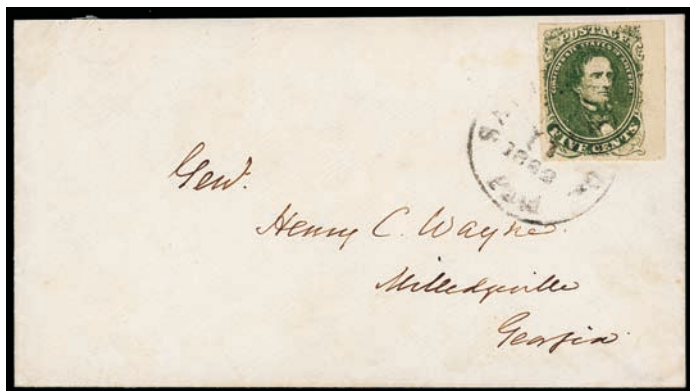 POSTAGE
CONFEDERATE STATES OF AMERICA
FIVE CENTS
1862
Genl.
Henry C. Wayne.
Milledgeville
Georgia